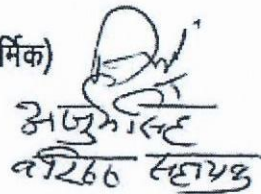 र्मिक)
अजुम सिंह
वरिष्ठ सहायक